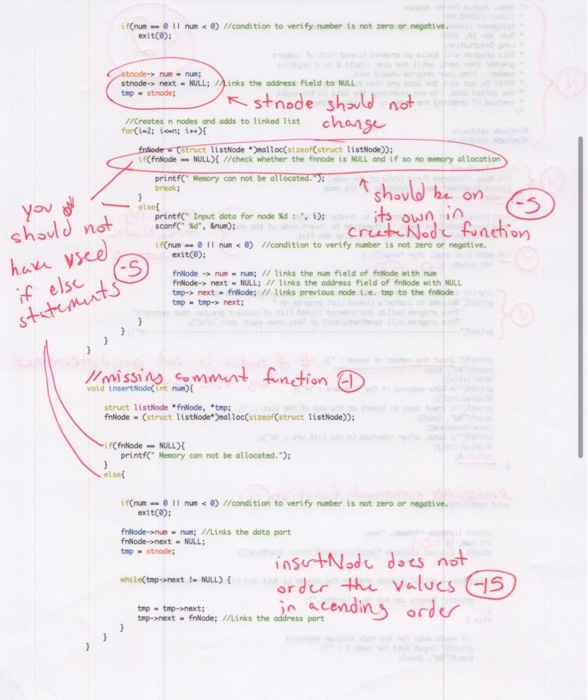 if(num == 0 || num < 0) //condition to verify number is not zero or negative.
exit(0);
stnode-> num = num;
stnode-> next = NULL; //Links the address field to NULL
tmp = stnode;
stnode should not
change
//Creates n nodes and adds to linked list
for(i=2; i<=n; i++){
fnNode = (struct listNode *)malloc(sizeof(struct listNode));
if(fnNode == NULL){ //check whether the fnnode is NULL and if so no memory allocation
printf(" Memory can not be allocated.");
break;
}
should be on
its own in
createNode function
-5
else{
printf(" Input data for node %d : ", i);
scanf(" %d", &num);
if(num == 0 || num < 0) //condition to verify number is not zero or negative.
exit(0);
fnNode -> num = num; // links the num field of fnNode with num
fnNode-> next = NULL; // links the address field of fnNode with NULL
tmp-> next = fnNode; // links previous node i.e. tmp to the fnNode
tmp = tmp-> next;
}
}
}
you
should not
have used
if else
statements
-5
//missing comment function -1
void insertNode(int num){
struct listNode *fnNode, *tmp;
fnNode = (struct listNode*)malloc(sizeof(struct listNode));
if(fnNode == NULL){
printf(" Memory can not be allocated.");
}
else{
if(num == 0 || num < 0) //condition to verify number is not zero or negative.
exit(0);
fnNode->num = num; //Links the data part
fnNode->next = NULL;
tmp = stnode;
while(tmp->next != NULL) {
tmp = tmp->next;
tmp->next = fnNode; //Links the address part
}
}
}
insertNode does not
order the values -15
in acending order